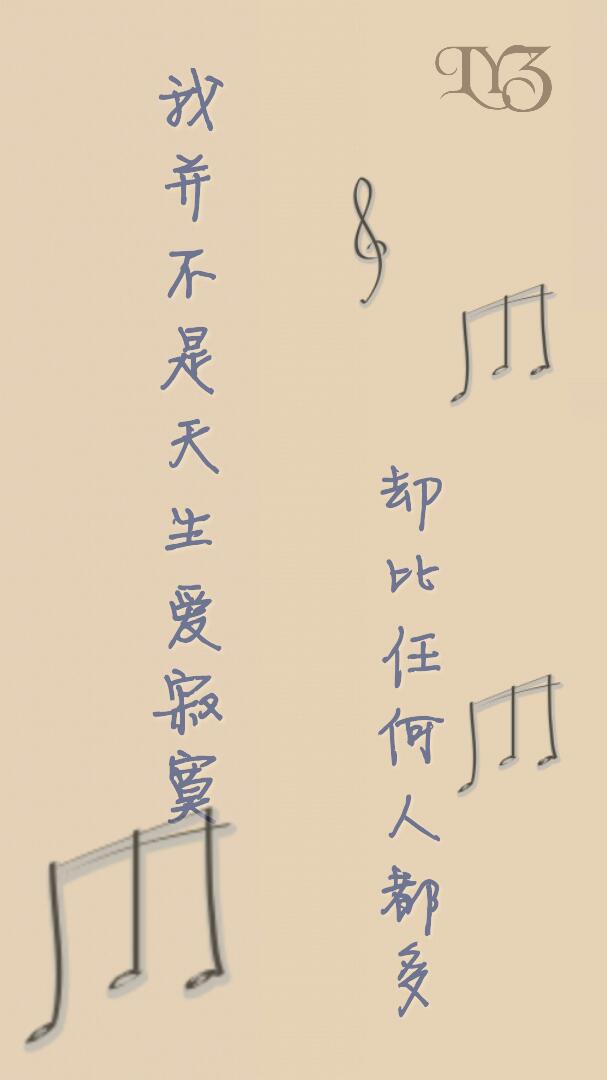 我并不是天生爱寂寞
却比任何人都多
LYZ